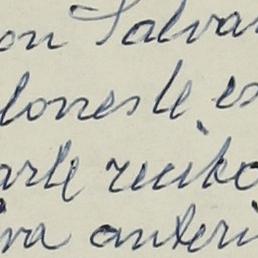 on Salva
lones le es
arle recibo
iva anteri